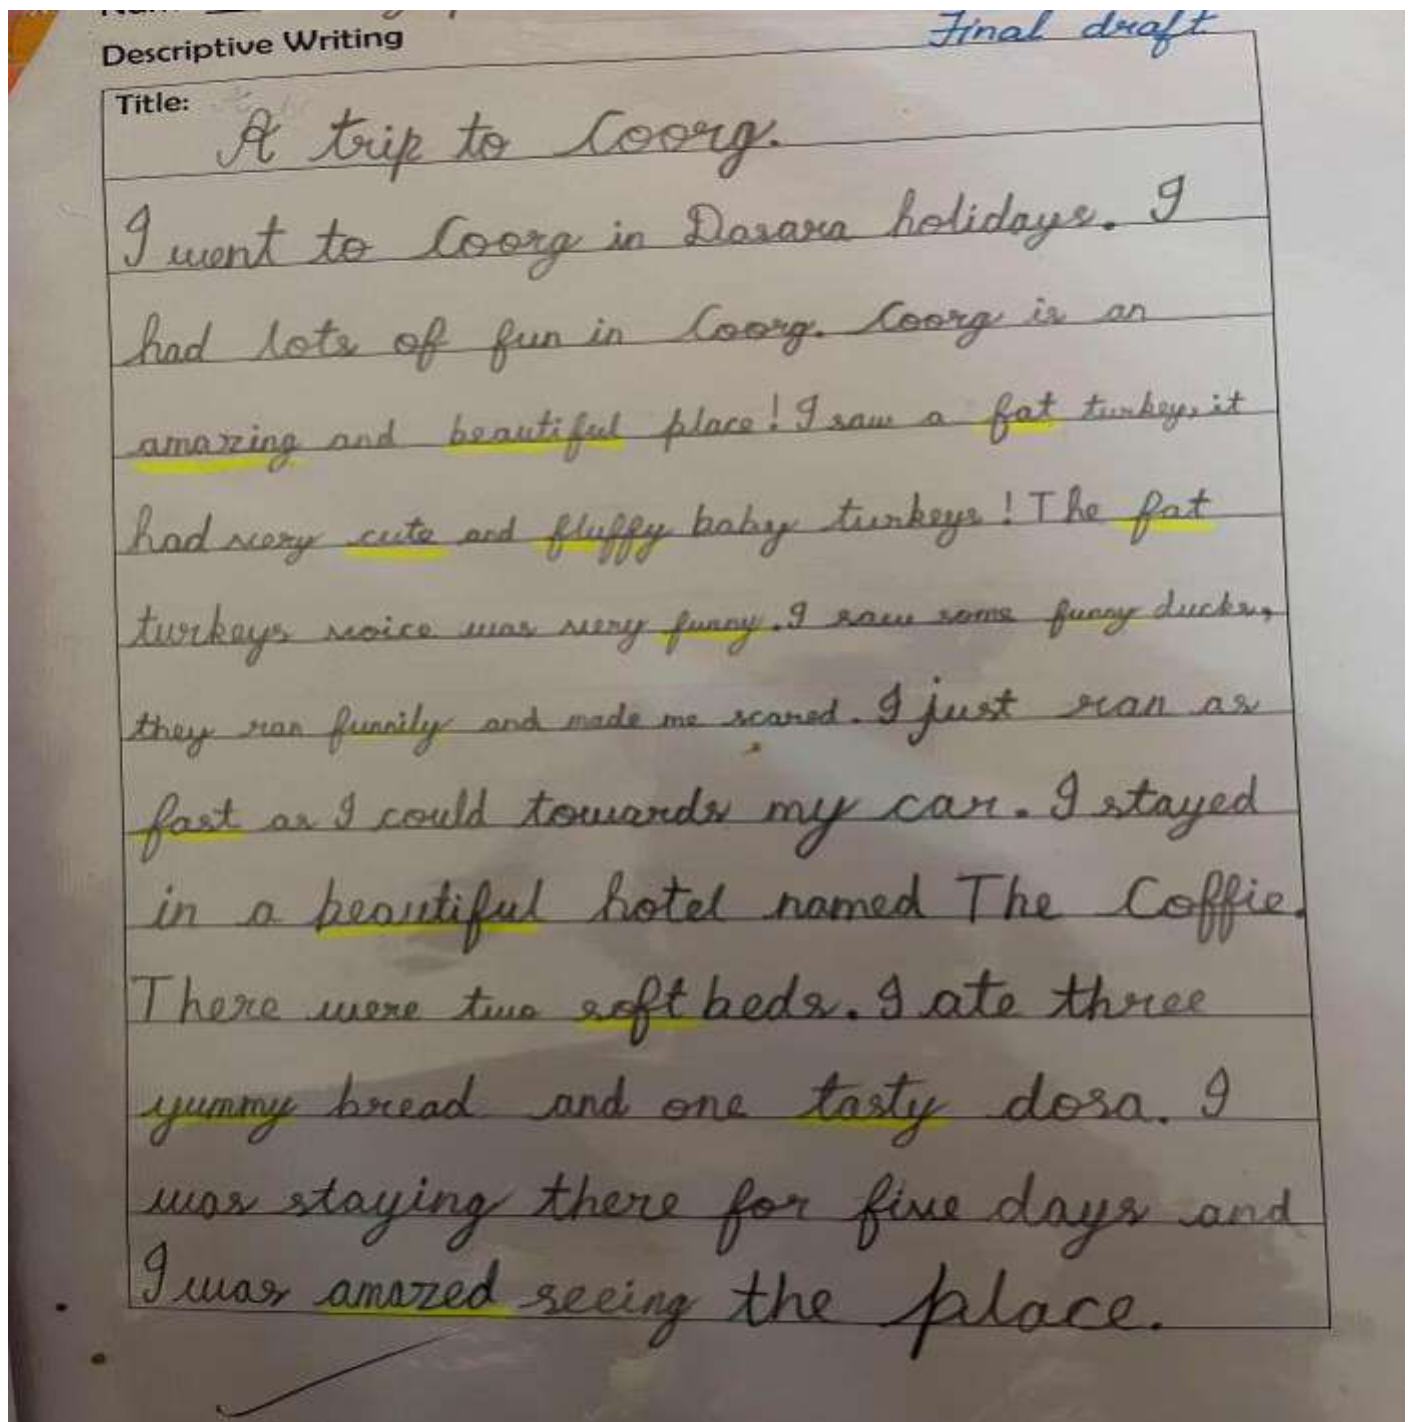 Descriptive Writing
Final draft
Title:
A trip to Coorg.
I went to Coorg in Dasara holidays. I
had lots of fun in Coorg. Coorg is an
amazing and beautiful place! I saw a fat turkey, it
had very cute and fluffy baby turkeys! The fat
turkeys voice was very funny. I saw some funny ducks,
they ran funnily and made me scared. I just ran as
fast as I could towards my car. I stayed
in a beautiful hotel named The Coffie.
There were two soft beds. I ate three
yummy bread and one tasty dosa. I
was staying there for five days and
I was amazed seeing the place.